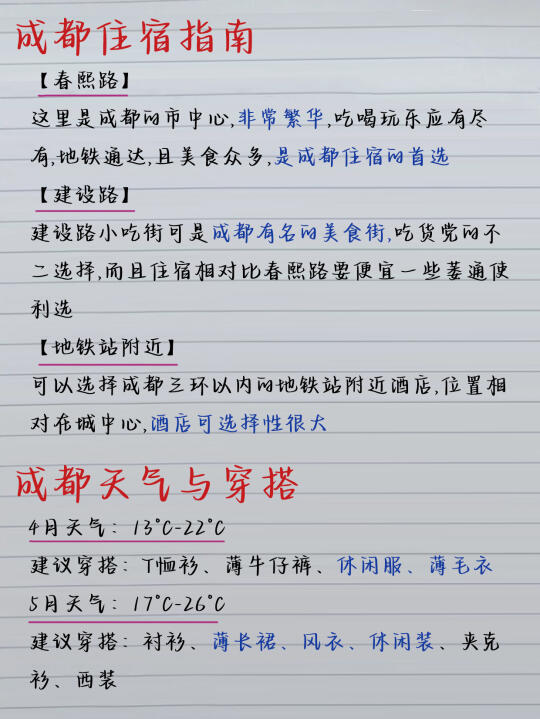 成都住宿指南
【春熙路】
这里是成都的市中心,非常繁华,吃喝玩乐应有尽
有,地铁通达,且美食众多,是成都住宿的首选
【建设路】
建设路小吃街可是成都有名的美食街,吃货党的不
二选择,而且住宿相对比春熙路要便宜一些萎通便
利选
【地铁站附近】
可以选择成都三环以内的地铁站附近酒店,位置相
对在城中心,酒店可选择性很大
成都天气与穿搭
4月天气：13°C-22°C
建议穿搭：T恤衫、薄牛仔裤、休闲服、薄毛衣
5月天气：17°C-26°C
建议穿搭：衬衫、薄长裙、风衣、休闲装、夹克
衫、西装